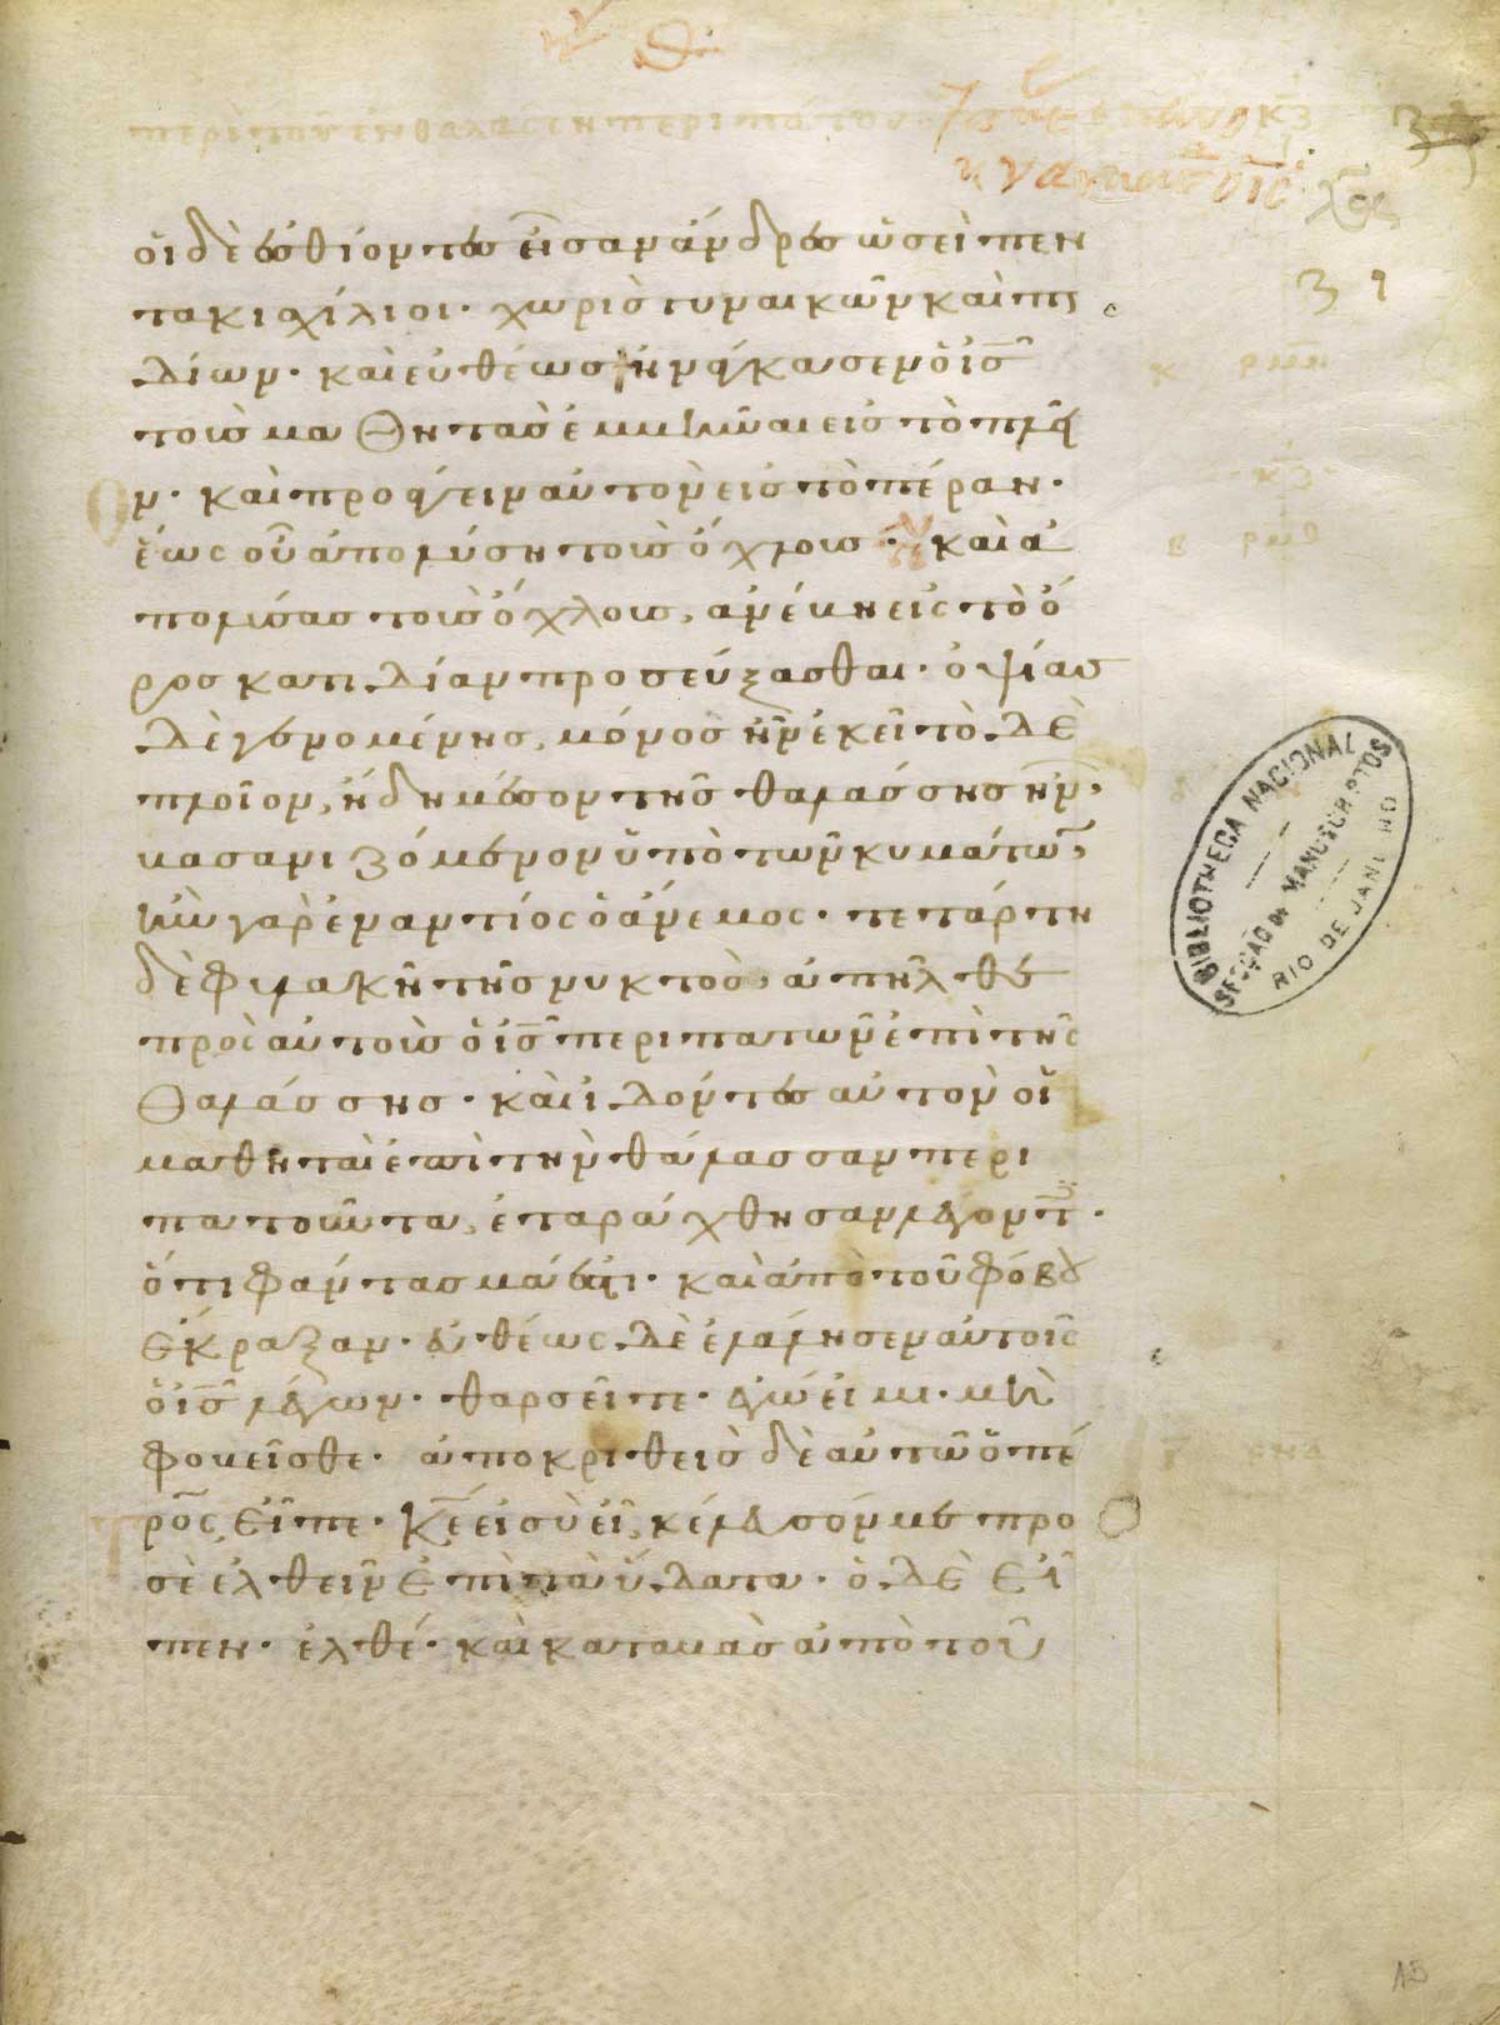 περὶ τοῦ ἐν θαλάσση περιπάτου
κζ
οἱ δὲ ἐσθίοντες ἦσαν ἄνδρες ὡσεὶ πεν
τακισχίλιοι· χωρὶς γυναικῶν καὶ παι
δίων· καὶ εὐθέως ἠνάγκασεν ὁ ις
τοὺς μαθητὰς ἐμβῆναι εἰς τὸ πλοῖ
ον· καὶ προάγειν αὐτὸν εἰς τὸ πέραν·
ἕως οὗ ἀπολύση τοὺς ὄχλους· καὶ ἀ
πολύσας τοὺς ὄχλους, ἀνέβη εἰς τὸ ὄ
ρος κατιδίαν προσεύξασθαι· ὀψίας
δὲ γενομένης, μόνος ἦν ἐκεῖ τὸ δὲ
πλοῖον, ἤδη μέσον τῆς θαλάσσης ἦν,
βασανιζόμενον ὑπὸ τῶν κυμάτων,
ἦν γὰρ ἐναντίος ὁ ἄνεμος· τετάρτη
δὲ φυλακῆ τῆς νυκτὸς, ἀπῆλθε
πρὸς αὐτοὺς ὁ ις περιπατῶν ἐπὶ τῆς
θαλάσσης· καὶ ἰδόντες αὐτὸν οἱ
μαθηταὶ ἐπὶ τὴν θάλασσαν περι
πατοῦντα, ἐταράχθησαν λέγοντες·
ὅτι φάντασμά ἐστι· καὶ ἀπὸ τοῦ φόβου
ἔκραξαν· εὐθέως δὲ ἐλάλησεν αὐτοῖς
ὁ ις λέγων· θαρσεῖτε· ἐγώ εἰμι· μὴ
φοβεῖσθε· ἀποκριθεὶς δὲ αὐτῶ ὁ πέ
τρος, εἶπε· κε εἰ σὺ εἶ, κέλευσόν με προ
σὲ ἐλθεῖν ἐπὶ τὰ ὕδατα· ὁ δὲ εἶ
πεν· ἐλθέ· καὶ καταβὰς ἀπὸ τοῦ
39
BIBLIOTHECA NACIONAL
SECÇÃO DE MANUSCRIPTOS
RIO DE JANEIRO
15